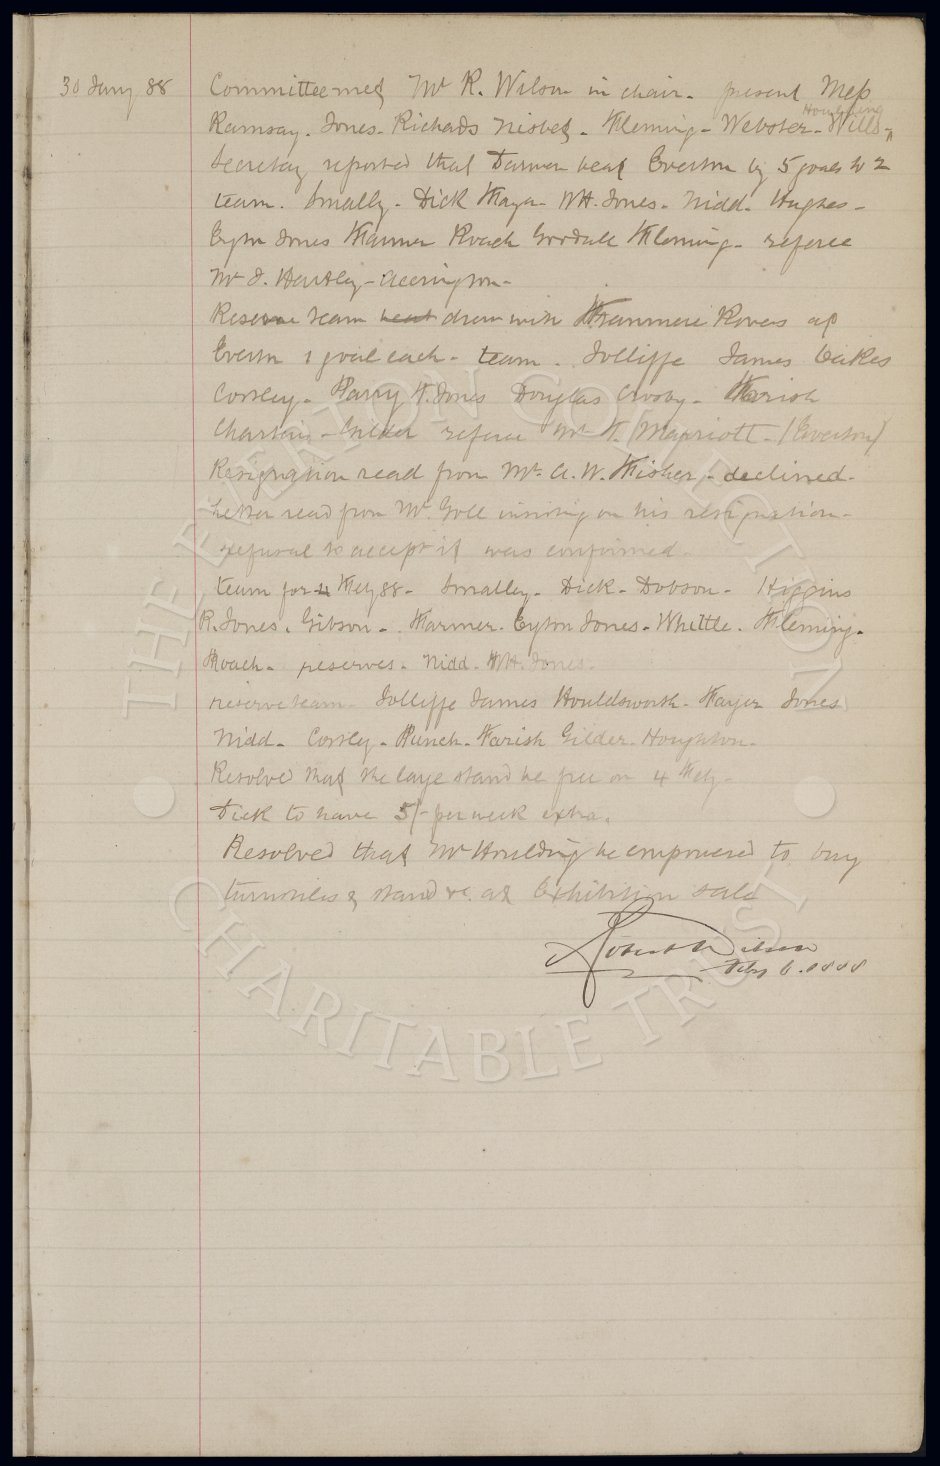 30 Jany 88
Committee met Mr R. Wilson in chair - present Mess
Houlding
Ramsay - Jones - Richards Nisbet - Fleming - Webster - Wills -
Secretary reported that Darwen beat Everton by 5 goals to 2
team. Smally - Dick Fayer - WH. Jones - Nidd - Hughes -
Eyton Jones Farmer Roach Goodall Fleming - referee
Mr J. Hartley - Accrington -
Reserve team beat drew with Tranmere Rovers at
Everton 1 goal each - team - Jolliffe James Oakes
Corsley - Parry T. Jones Douglas Crosby - Farish
Charlton - Gilder referee Mr T. Marriott - (Everton)
Resignation read from Mr. A. W. Fisher - declined -
Letter read from Mr. Goll insisting on his resignation -
refusal to accept it was confirmed -
team for 4 Feby 88 - Smalley - Dick - Dobson - Higgins
R. Jones. Gibson - Farmer - Eyton Jones - Whittle - Fleming -
Roach - reserves - Nidd - WH. Jones -
reserve team - Jolliffe James Houldsworth - Fayer Jones
Nidd - Corsley - Punch - Farish Gilder - Houghton -
Resolved that the large stand be free on 4 Feby -
Dick to have 5/- per week extra.
Resolved that Mr Houlding be empowered to buy
turnstiles & stand &c. at Exhibition sale
Robert Wilson
Feby 6. 1888
THE EVERTON COLLECTION
CHARITABLE TRUST